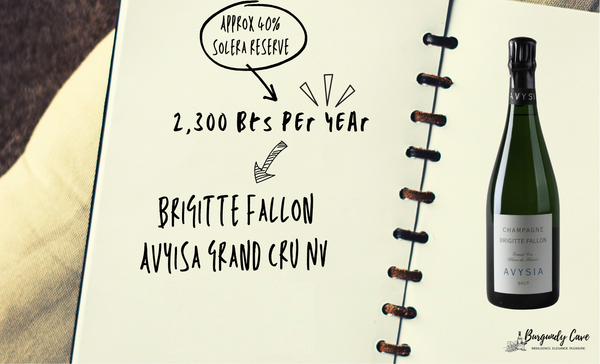 APPROX 40%
SOLERA RESERVE
2,300 Bts PEr YEAr
BRIGITTE FALLON
AVYISA GRAND CRU NV
AVYSIA
CHAMPAGNE
BRIGITTE FALLON
Grand Cru
Blanc de Blancs
AVYSIA
BRUT
Burgundy Cave
INDULGENCE, ELEGANCE, PLEASURE